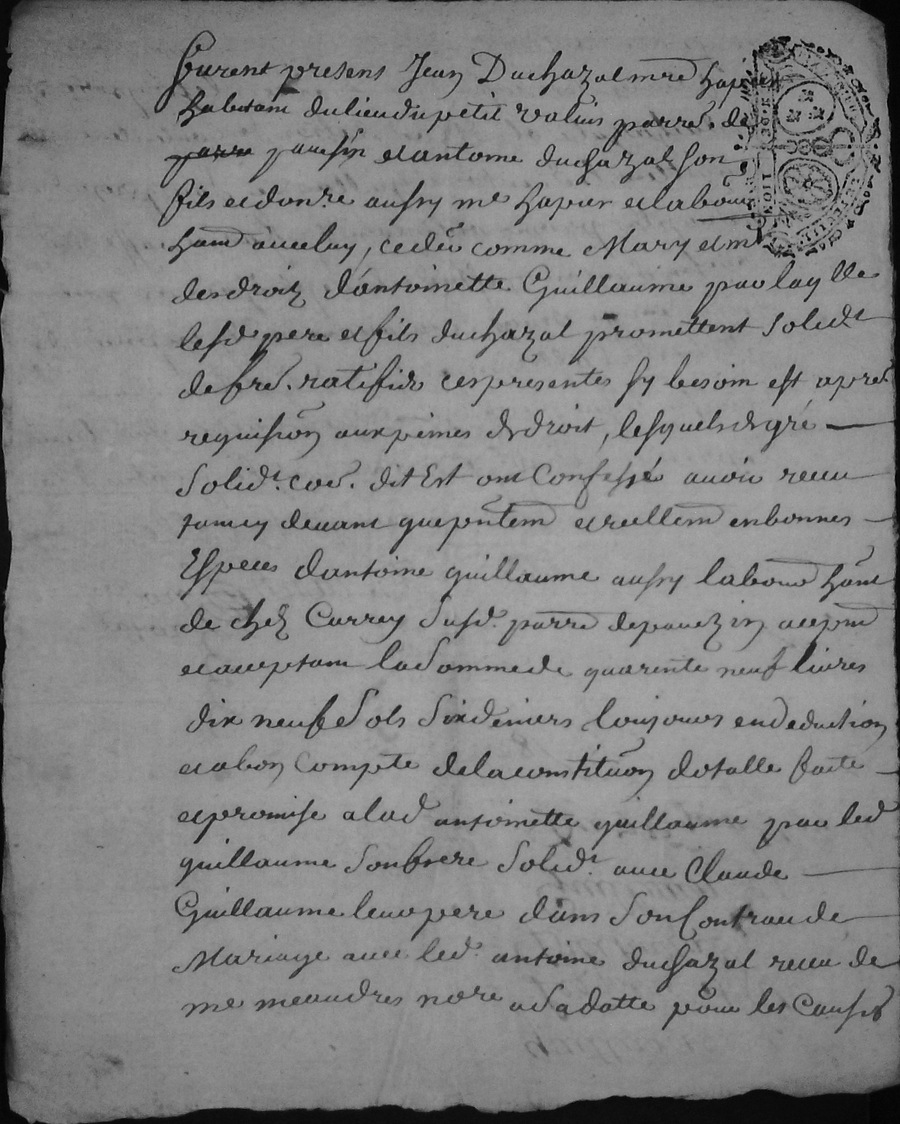 furent presens Jean Duchazal mre hapier
habitant du lieu du petit valuis parre. de
parre pauesin et antoine duchazal son
fils et donre aussy me hapier et labour
hant auec luy, cedt comme Mary et m
des droiz d'antoinette Guillaume par laqlle
lesd pere et fils duchazal promettent solidt
de fre. ratifier ces presentes sy besoin est apres
requision aux peines de droit, lesquels de gré
solidt. coe. dit Est ont Confessé auoir receu
tant cy deuant que pntem et reellem en bonnes
Especes d'antoine guillaume aussy labour hant
de chez Currey susd. parre de pauezin acepnt
et aceptant la somme de quarente neuf liures
dix neuf sols six deniers toujours en deduction
et a bon Compte de la constituon dotalle faite
et promise a lad antoinette guillaume par led
guillaume son frere solidt. auec Claude
Guillaume leur pere dans son Contrau de
Mariage auec led. antoine duchazal receu de
me meandres nore a sa dotte pour les Causes